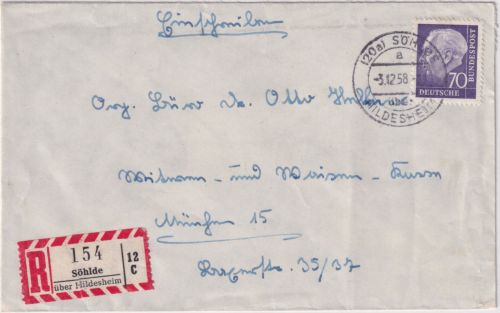 Einschreiben
(20a) SÖHLDE
a
-3.12.58.-
über
HILDESHEIM
70
DEUTSCHE
BUNDESPOST
Org. Büro Dr. Otto
Witwen- und Waisen-Kasse
München 15
35/37
R
154
Söhlde
über Hildesheim
12
C